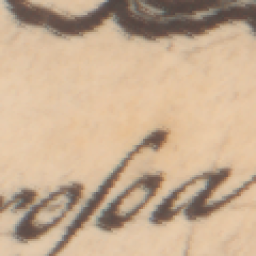 roſoa